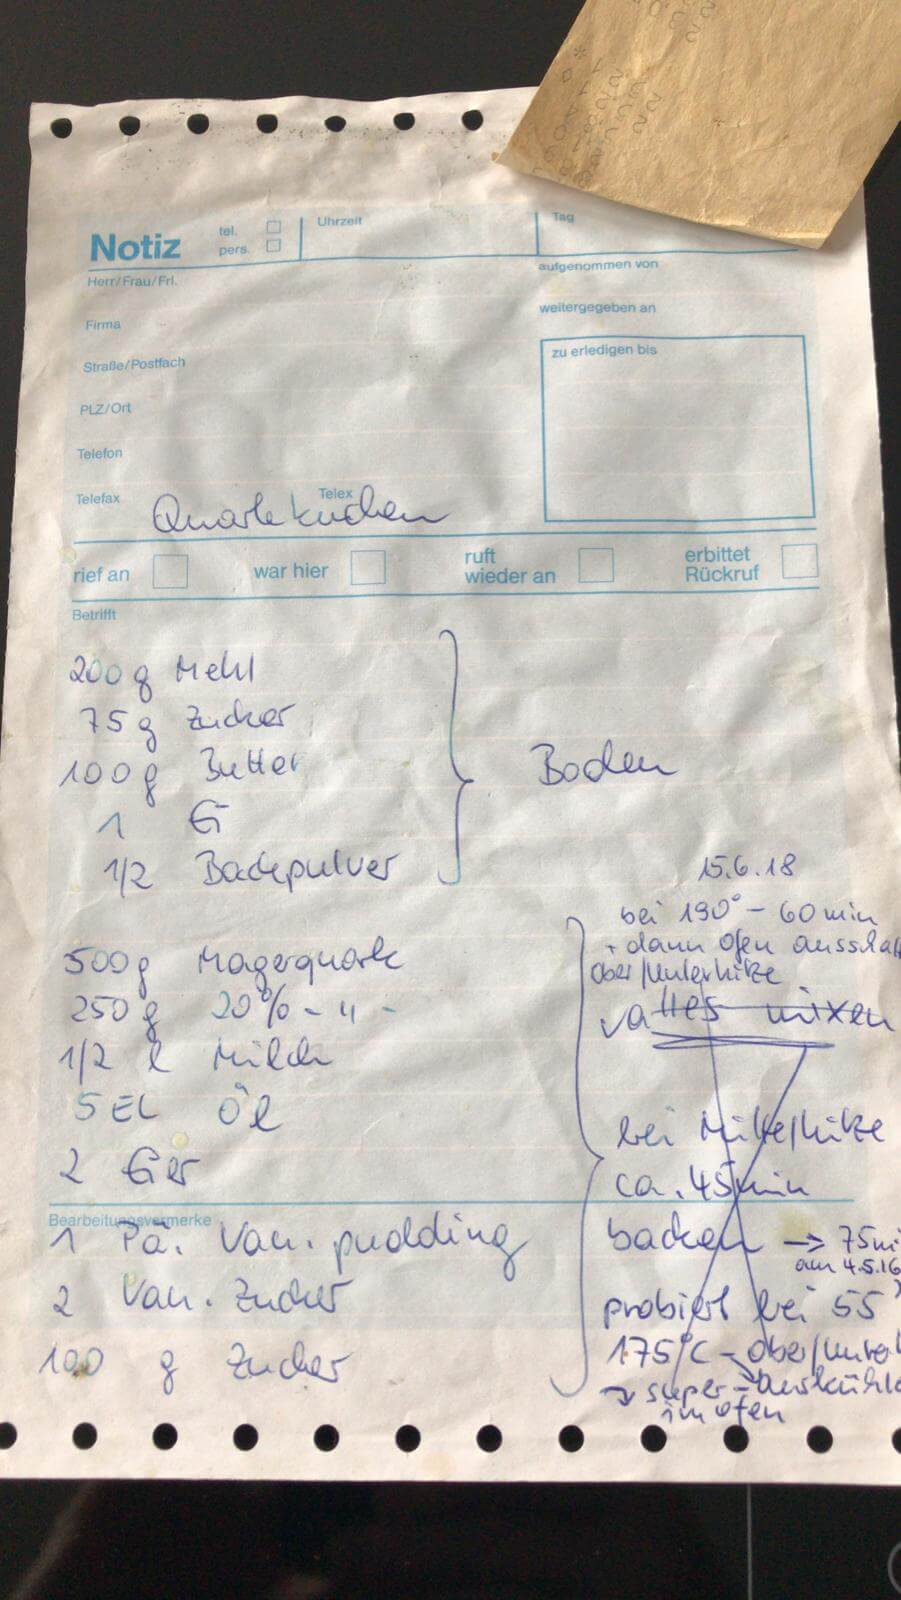 Notiz
tel.
pers.
Uhrzeit
Tag
Herr/Frau/Frl.
aufgenommen von
Firma
weitergegeben an
Straße/Postfach
zu erledigen bis
PLZ/Ort
Telefon
Telefax
Telex
Quarkkuchen
rief an
war hier
ruft
wieder an
erbittet
Rückruf
Betrifft
200 g Mehl
75 g Zucker
100 g Butter
1 Ei
1/2 Backpulver
Boden
500 g Magerquark
250 g 20% - " -
1/2 l Milch
5 EL Öl
2 Eier
Bearbeitungsvermerke
1 Pä. Van. pudding
2 Van. Zucker
100 g Zucker
15.6.18
bei 190° - 60 min
+ dann Ofen
ober/Unterhitze
alles mixen
bei
ca. 45 min
backen → 75
am 4.5.16
probiert bei 55
175°C - ober/
→ super -
im Ofen